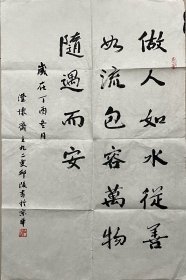 做人如水從善
如流包容萬物
隨遇而安
歲在丁酉月
澄懷齋主九二叟書於京華